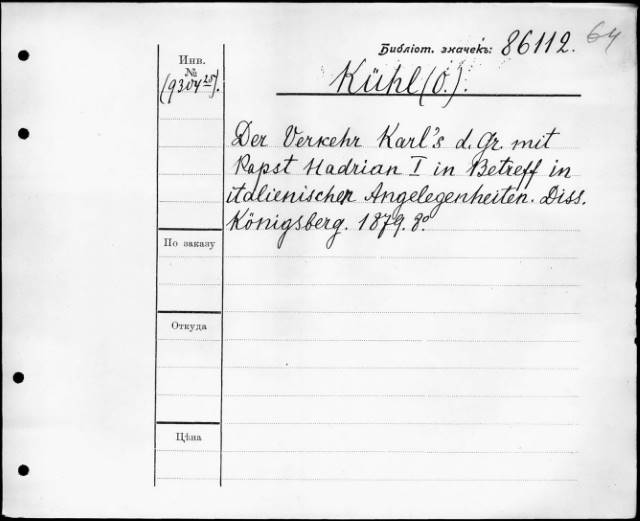 Библіот. значекъ: 86112. 64
Инв.
№
Kühl (O.).
Der Verkehr Karl's d. Gr. mit
Papst Hadrian I in Betreff in
italienischen Angelegenheiten. Diss.
Königsberg. 1879. 8º.
По заказу
Откуда
Цѣна